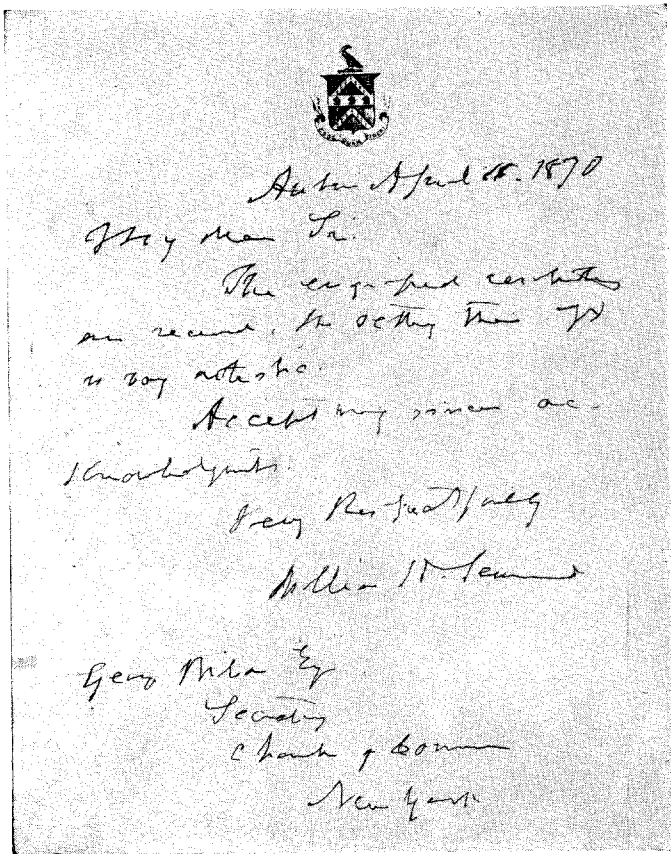 Auburn April 18. 1870
My dear Sir.
The engrossed resolutions
are received. The setting
is very artistic.
Accept my sincere ac-
knowledgments.
Very Respectfully
William H. Seward
George Wilson Esq
Secretary
Chamber of Commerce
New York